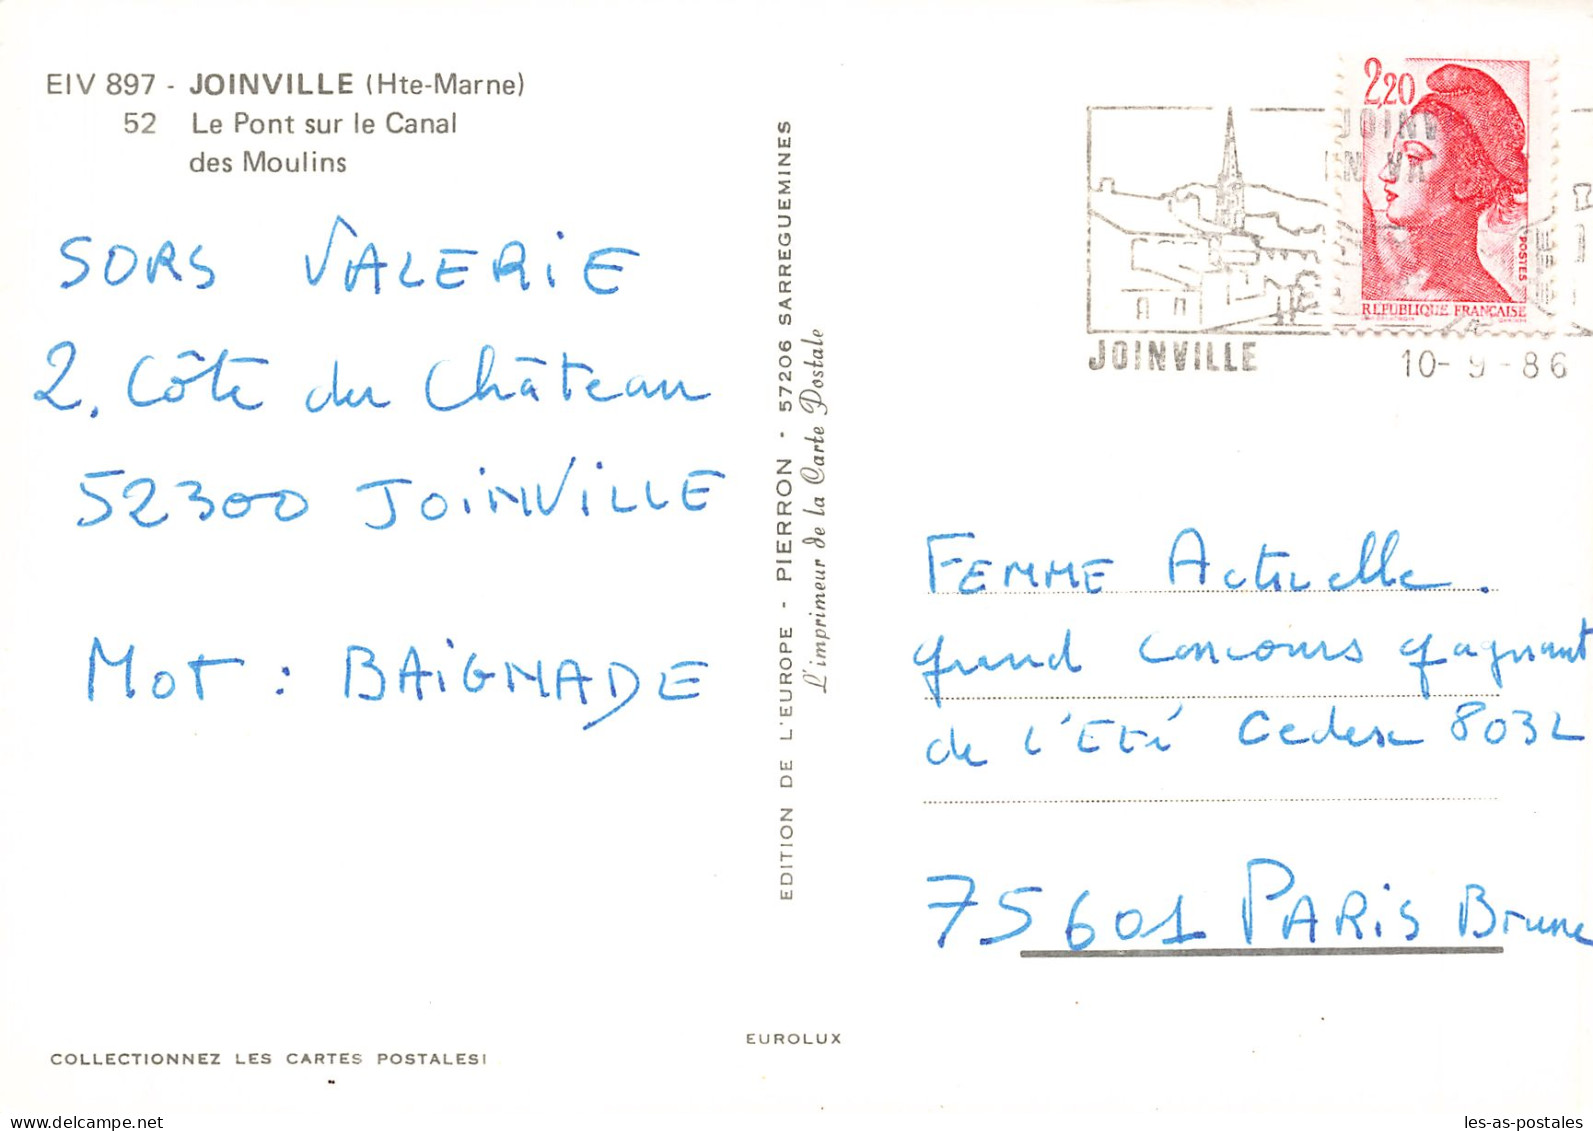 EIV 897 - JOINVILLE (Hte-Marne)
52 Le Pont sur le Canal
des Moulins
SORS VALERIE
2, Côte du Château
52300 JOINVILLE
MOT : BAIGNADE
COLLECTIONNEZ LES CARTES POSTALES!
EDITION DE L'EUROPE - PIERRON - 57206 SARREGUEMINES
L'imprimeur de la Carte Postale
EUROLUX
2,20
POSTES
REPUBLIQUE FRANÇAISE
JOINV
JOINVILLE
10-9-86
FEMME Actuelle.
grand concours gagnant
de l'Eté Cedex 8032
75601 PARIS Brune
les-as-postales